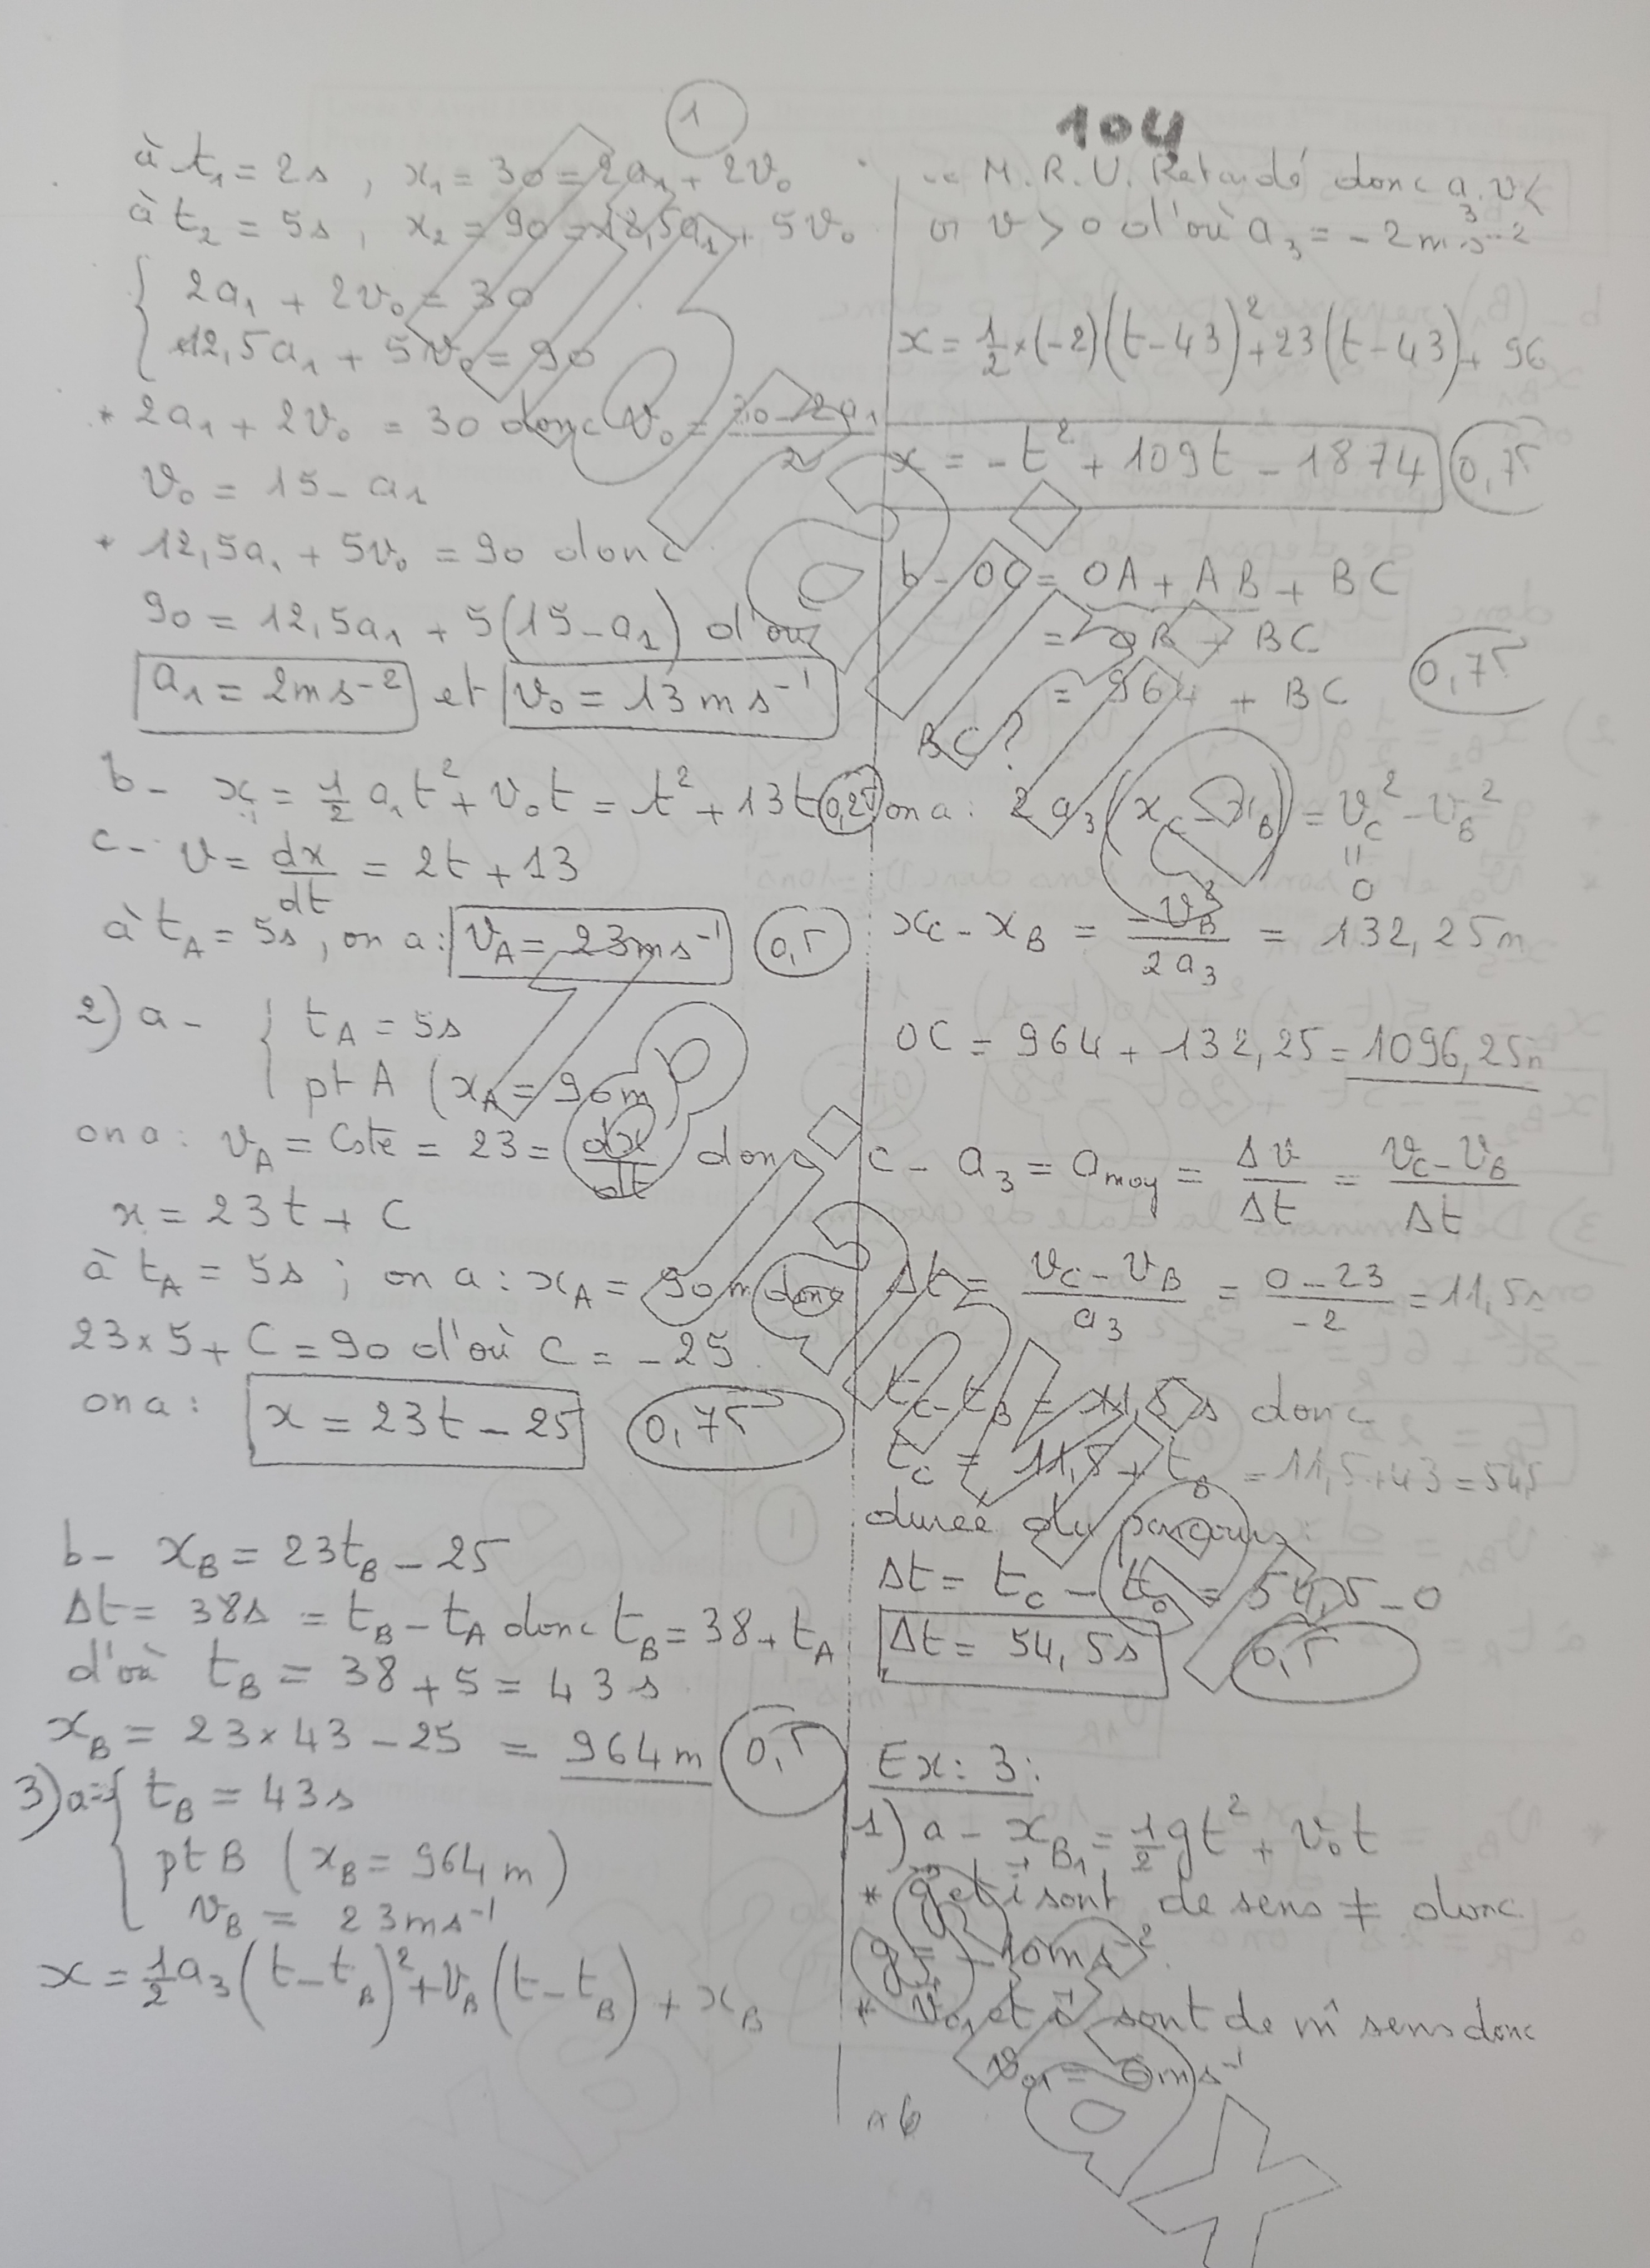 1
104
à t₁ = 2s , x₁ = 30 = 2a₁ + 2v₀
à t₂ = 5s , x₂ = 90 = 12,5a₁ + 5v₀
{ 2a₁ + 2v₀ = 30
12,5a₁ + 5v₀ = 90
* 2a₁ + 2v₀ = 30 donc v₀ = (30 - 2a₁)/2
v₀ = 15 - a₁
* 12,5a₁ + 5v₀ = 90 donc
90 = 12,5a₁ + 5(15 - a₁) d'où
a₁ = 2ms⁻² et v₀ = 13ms⁻¹
b - x = 1/2 a₁t² + v₀t = t² + 13t 0,25
c - v = dx/dt = 2t + 13
à t_A = 5s, on a : v_A = 23ms⁻¹ 0,5
2) a - { t_A = 5s
pt A (x_A = 96m
on a : v_A = Cste = 23 = dx/dt donc
x = 23t + C
à t_A = 5s ; on a : x_A = 90m donc
23×5 + C = 90 d'où C = -25
on a : x = 23t - 25 0,75
b - x_B = 23t_B - 25
Δt = 38s = t_B - t_A donc t_B = 38 + t_A
d'où t_B = 38 + 5 = 43s
x_B = 23×43 - 25 = 964m 0,5
3) a - { t_B = 43s
pt B (x_B = 964m)
v_B = 23ms⁻¹
x = 1/2 a₃(t - t_B)² + v_B(t - t_B) + x_B
M.R.U. Retardé donc a₃.v <
or v > 0 d'où a₃ = -2m.s⁻²
x = 1/2 ×(-2)(t - 43)² + 23(t - 43) + 96
x = -t² + 109t - 1874 0,75
b - OC = OA + AB + BC
= OB + BC
= 964 + BC 0,75
BC ?
on a : 2a₃(x_C - x_B) = v_C² - v_B²
=
0
x_C - x_B = -v_B²/2a₃ = 132,25m
OC = 964 + 132,25 = 1096,25m
c - a₃ = a_moy = Δv/Δt = (v_C - v_B)/Δt
Δt = (v_C - v_B)/a₃ = (0 - 23)/-2 = 11,5s
t_C - t_B = 11,5s donc
t_C = 11,5 + t_B = 11,5 + 43 = 54,5
durée du parcours :
Δt = t_C - t₀ = 54,5 - 0
Δt = 54,5s 0,5
Ex : 3 :
1) a - x_B₁ = 1/2 gt² + v₀t
* g⃗ et i⃗ sont de sens ≠ donc
g = -10ms⁻²
* v⃗₀₁ et i⃗ sont de m̂ sens donc
v₀₁ = 6ms⁻¹